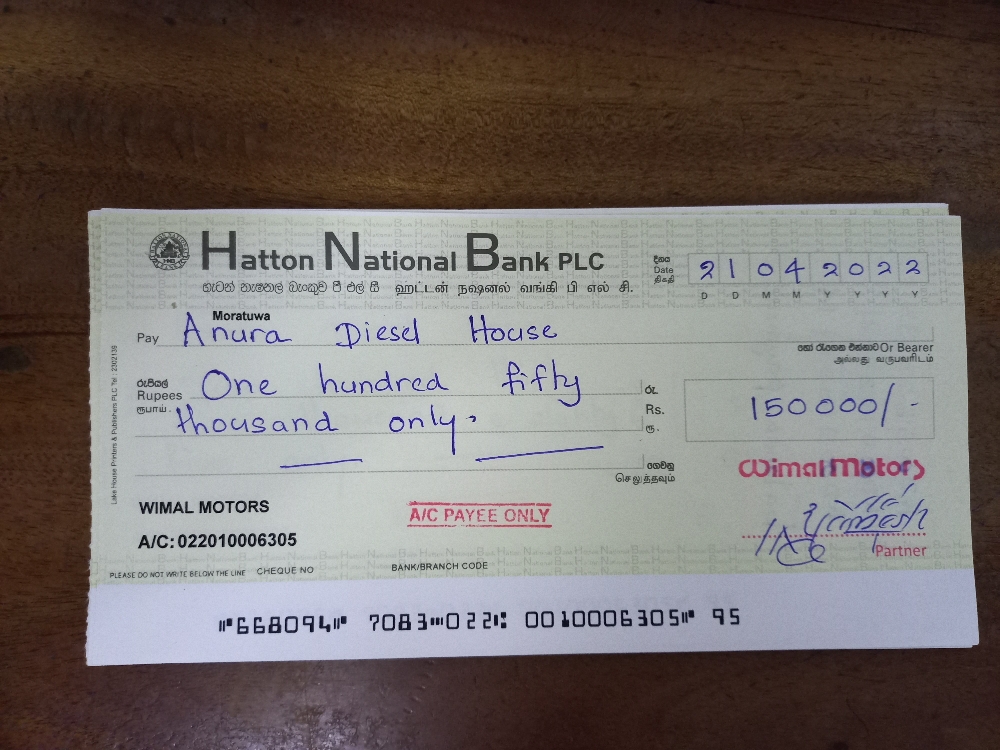 Hatton National Bank PLC
හැටන් නැෂනල් බැංකුව පී එල් සී ஹட்டன் நஷனல் வங்கி பி எல் சி.
දිනය
Date
திகதி
21 04 2022
D D M M Y Y Y Y
Moratuwa
Pay Anura Diesel House
හෝ රැගෙන එන්නාට Or Bearer
அல்லது வருபவரிடம்
රුපියල්
Rupees
ரூபாய்.
One hundred fifty
thousand only.
රු.
Rs.
ரூ.
150000/-
ගෙවනු
செலுத்தவும்
Lake House Printers & Publishers PLC Tel : 2302139
Wimal Motors
WIMAL MOTORS
A/C: 022010006305
A/C PAYEE ONLY
Partner
PLEASE DO NOT WRITE BELOW THE LINE CHEQUE NO BANK/BRANCH CODE
⑈668094⑈ 7083⑉022⑆ 0010006305⑈ 95